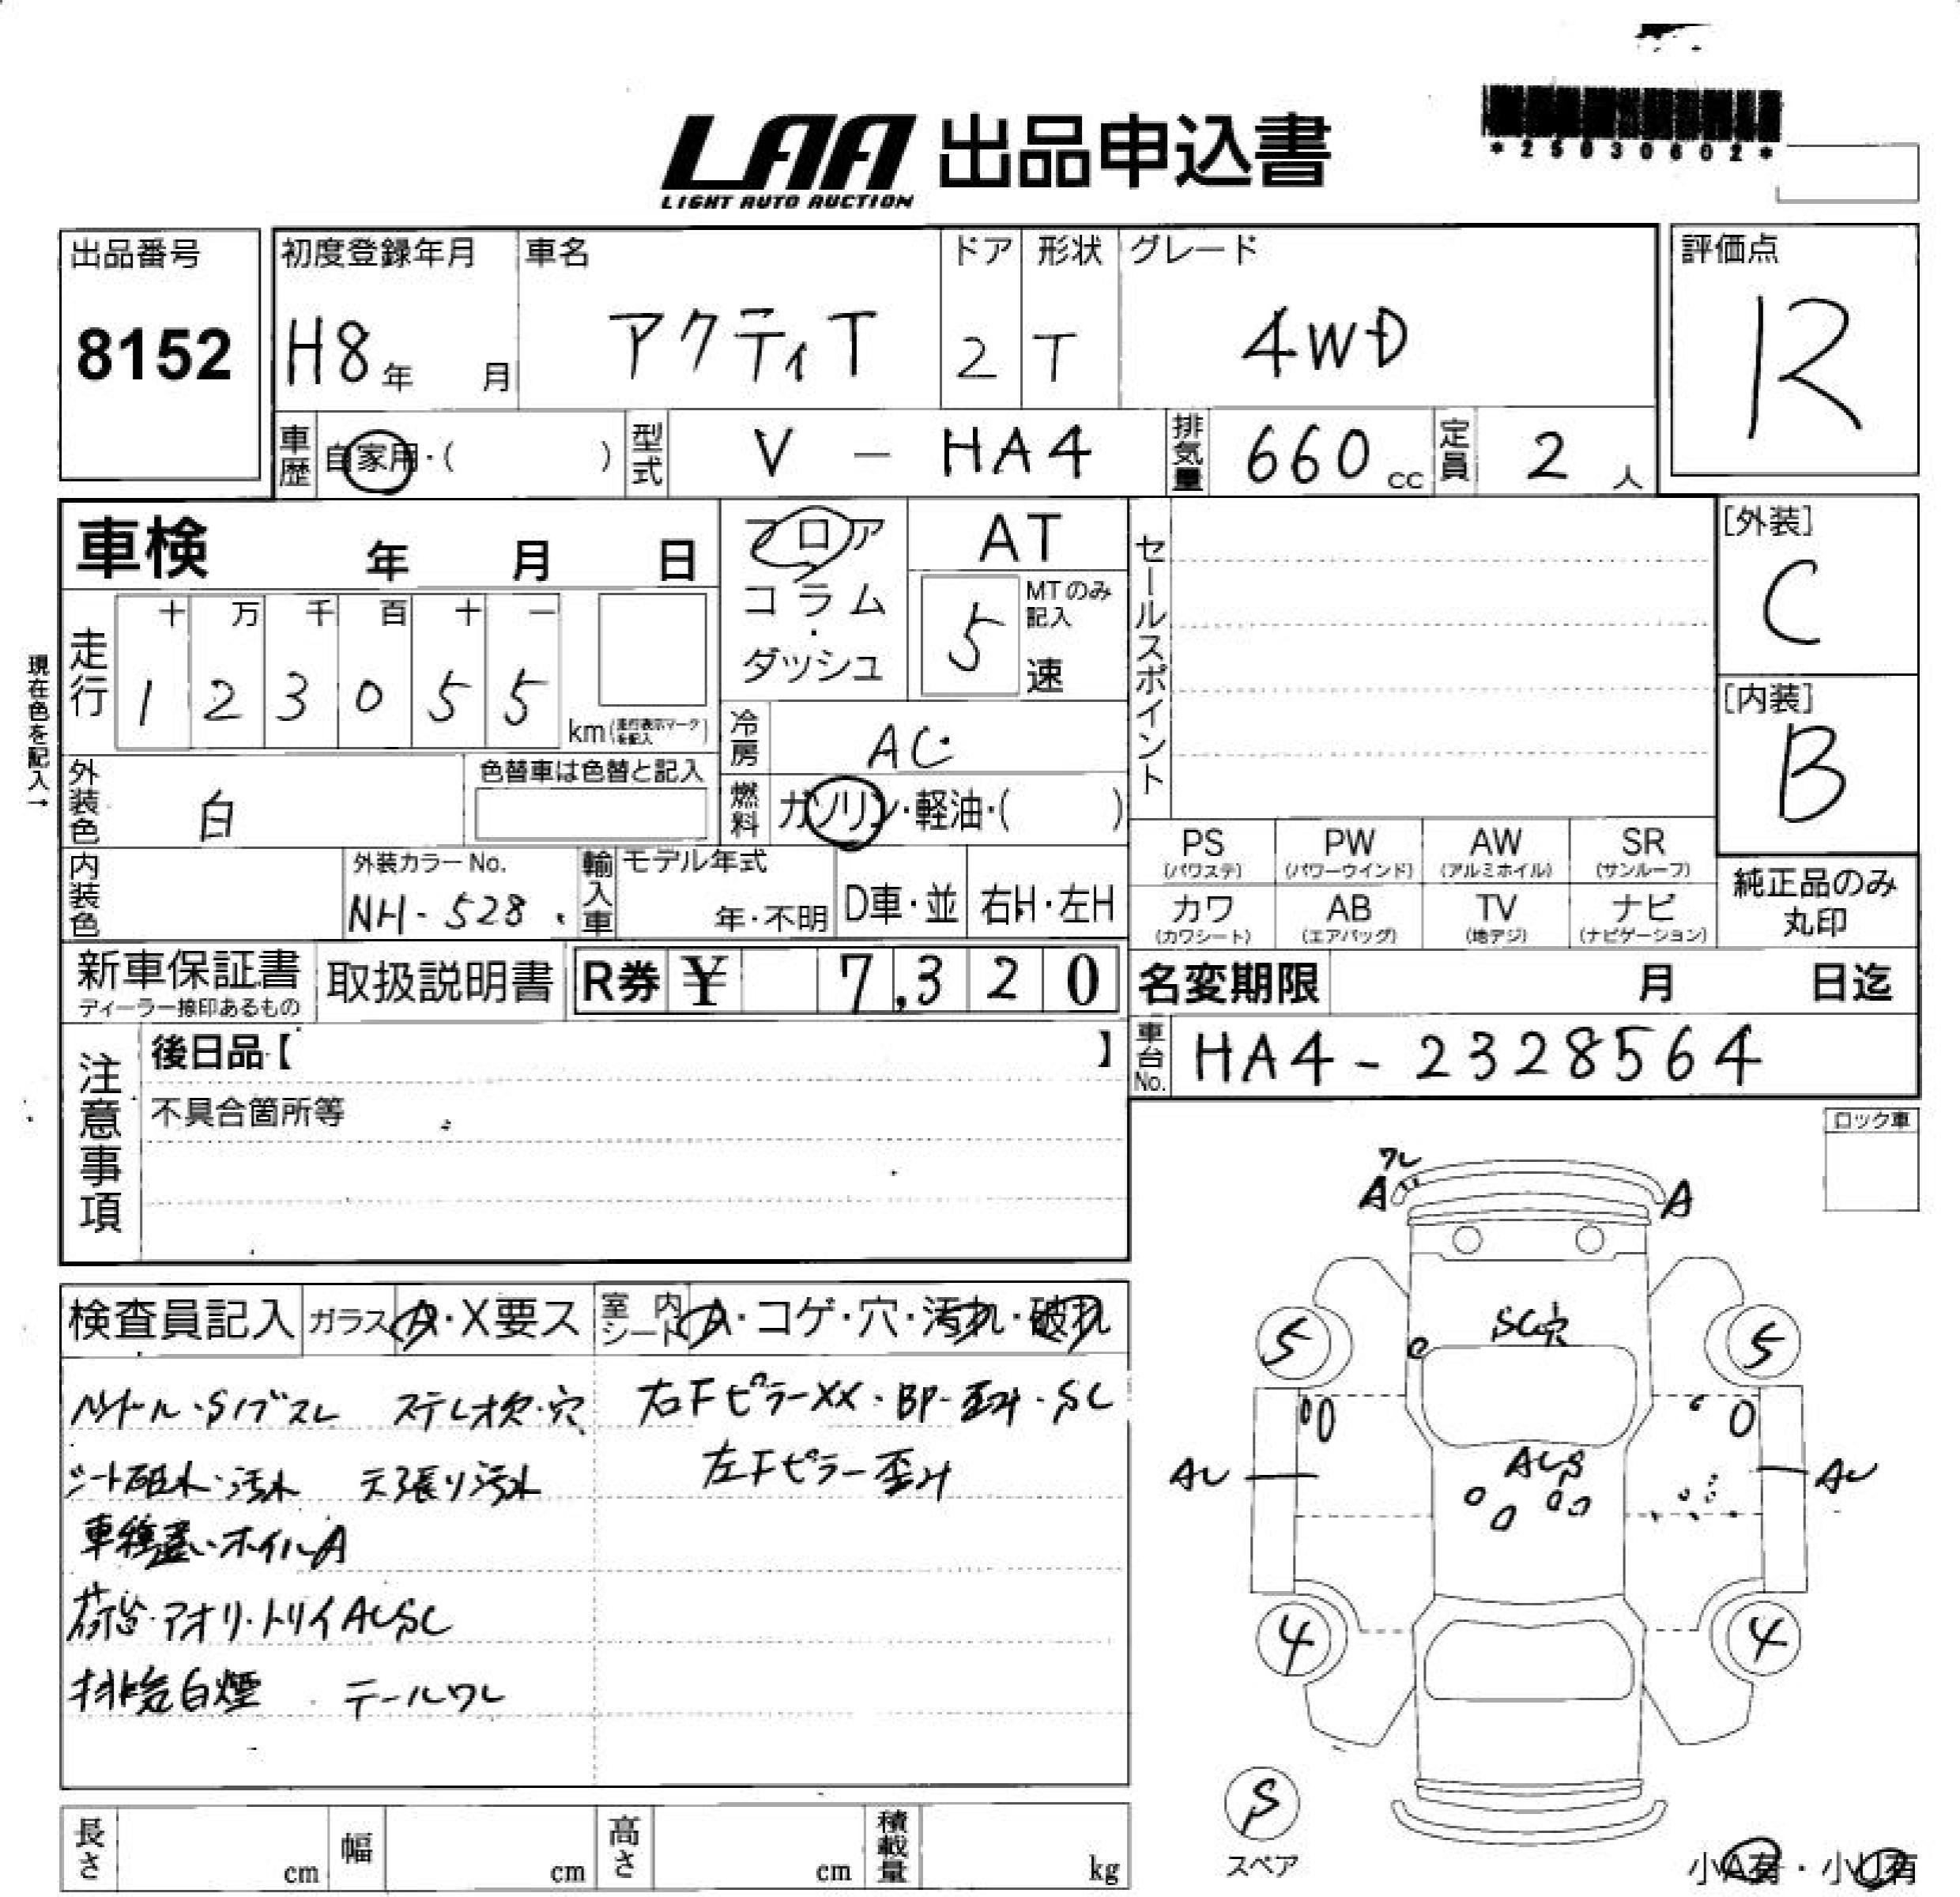 LAA 出品申込書
LIGHT AUTO AUCTION
*25030602*
出品番号
8152
初度登録年月
H8年 月
車名
アクティT
ドア
2
形状
T
グレード
4WD
評価点
R
車歴 自家用・( )
型式 V - HA4
排気量 660 cc
定員 2 人
車検 年 月 日
フロア
コラム
・
ダッシュ
AT
5
MTのみ
記入
速
セールスポイント
[外装]
C
[内装]
B
現在色を記入→
走行
十 万 千 百 十 一
1 2 3 0 5 5
km(走行表示マークを記入)
冷房 AC
外装色 白
色替車は色替と記入
燃料 ガソリン・軽油・( )
PS
(パワステ)
PW
(パワーウインド)
AW
(アルミホイル)
SR
(サンルーフ)
カワ
(カワシート)
AB
(エアバッグ)
TV
(地デジ)
ナビ
(ナビゲーション)
純正品のみ
丸印
内装色
外装カラーNo.
NH-528
輸入車
モデル年式
年・不明
D車・並
右H・左H
新車保証書
ディーラー捺印あるもの
取扱説明書
R券 ¥ 7,320
名変期限 月 日迄
車台No. HA4-2328564
注意事項
後日品【 】
不具合箇所等
ロック車
検査員記入
ガラス A・X要ス
室内シート A・コゲ・穴・汚れ・破れ
ハンドル・Sノブスレ ステレオ欠・穴
シート破れ・汚れ 天張り汚れ
車種違いホイルA
荷台・アオリ・トリイAUSC
排気白煙 テールワレ
右FピラーXX・BP・歪み・SC
左Fピラー歪み
ワレ
A
A
SC穴
5
5
AU
AUS
AU
4
4
S
スペア
小A有・小U有
長さ cm
幅 cm
高さ cm
積載量 kg